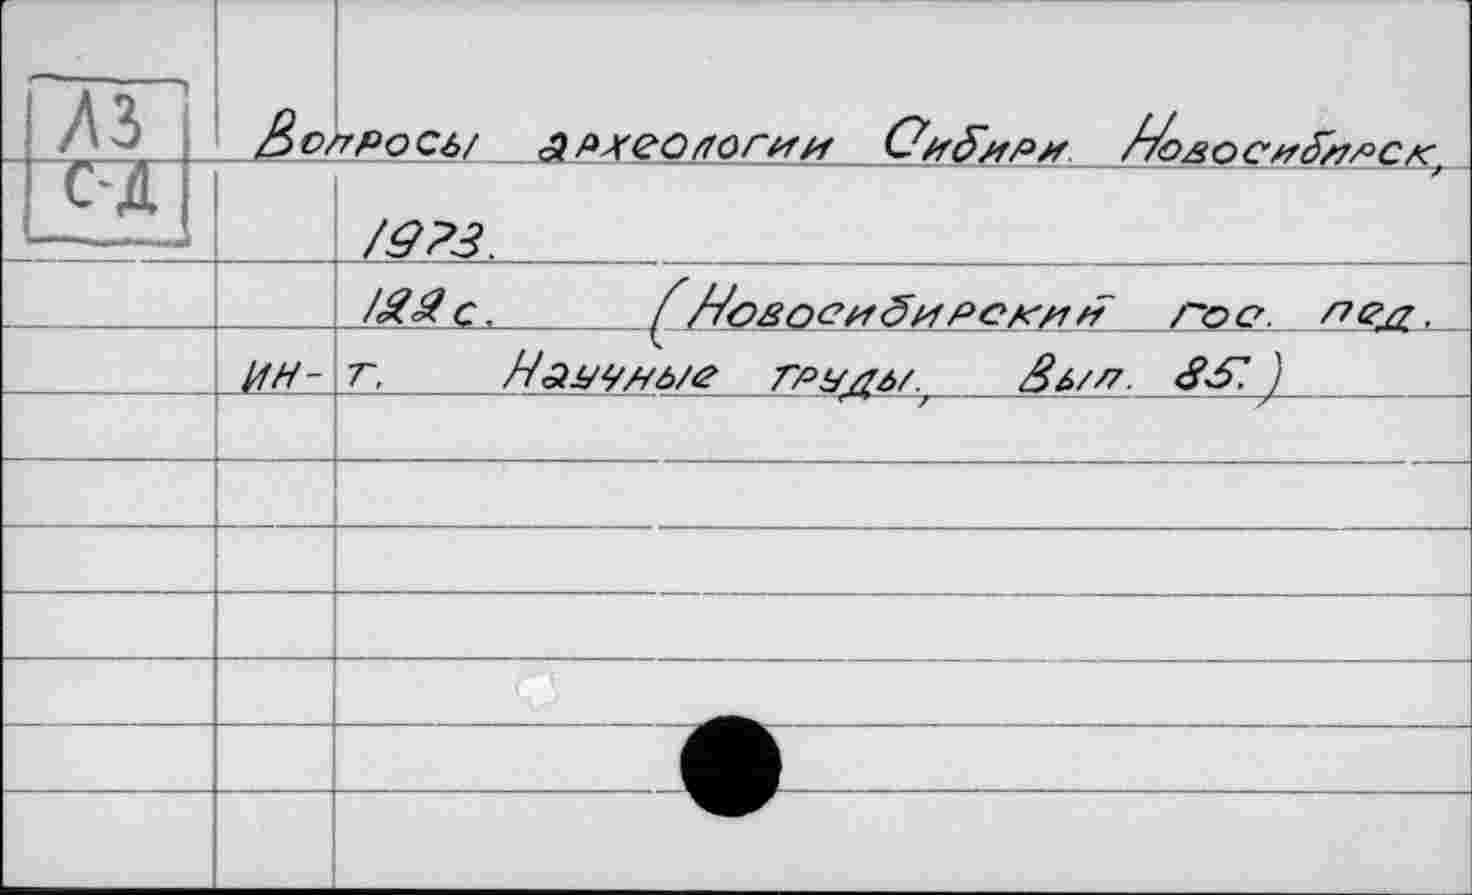 ЛЗ
С-Д
Вопросы археологии Сибири. Новосибирск,
1973.
122 с. (Новосибирский гос. пед.
ин-т. Научные труды, Вып. 85.)